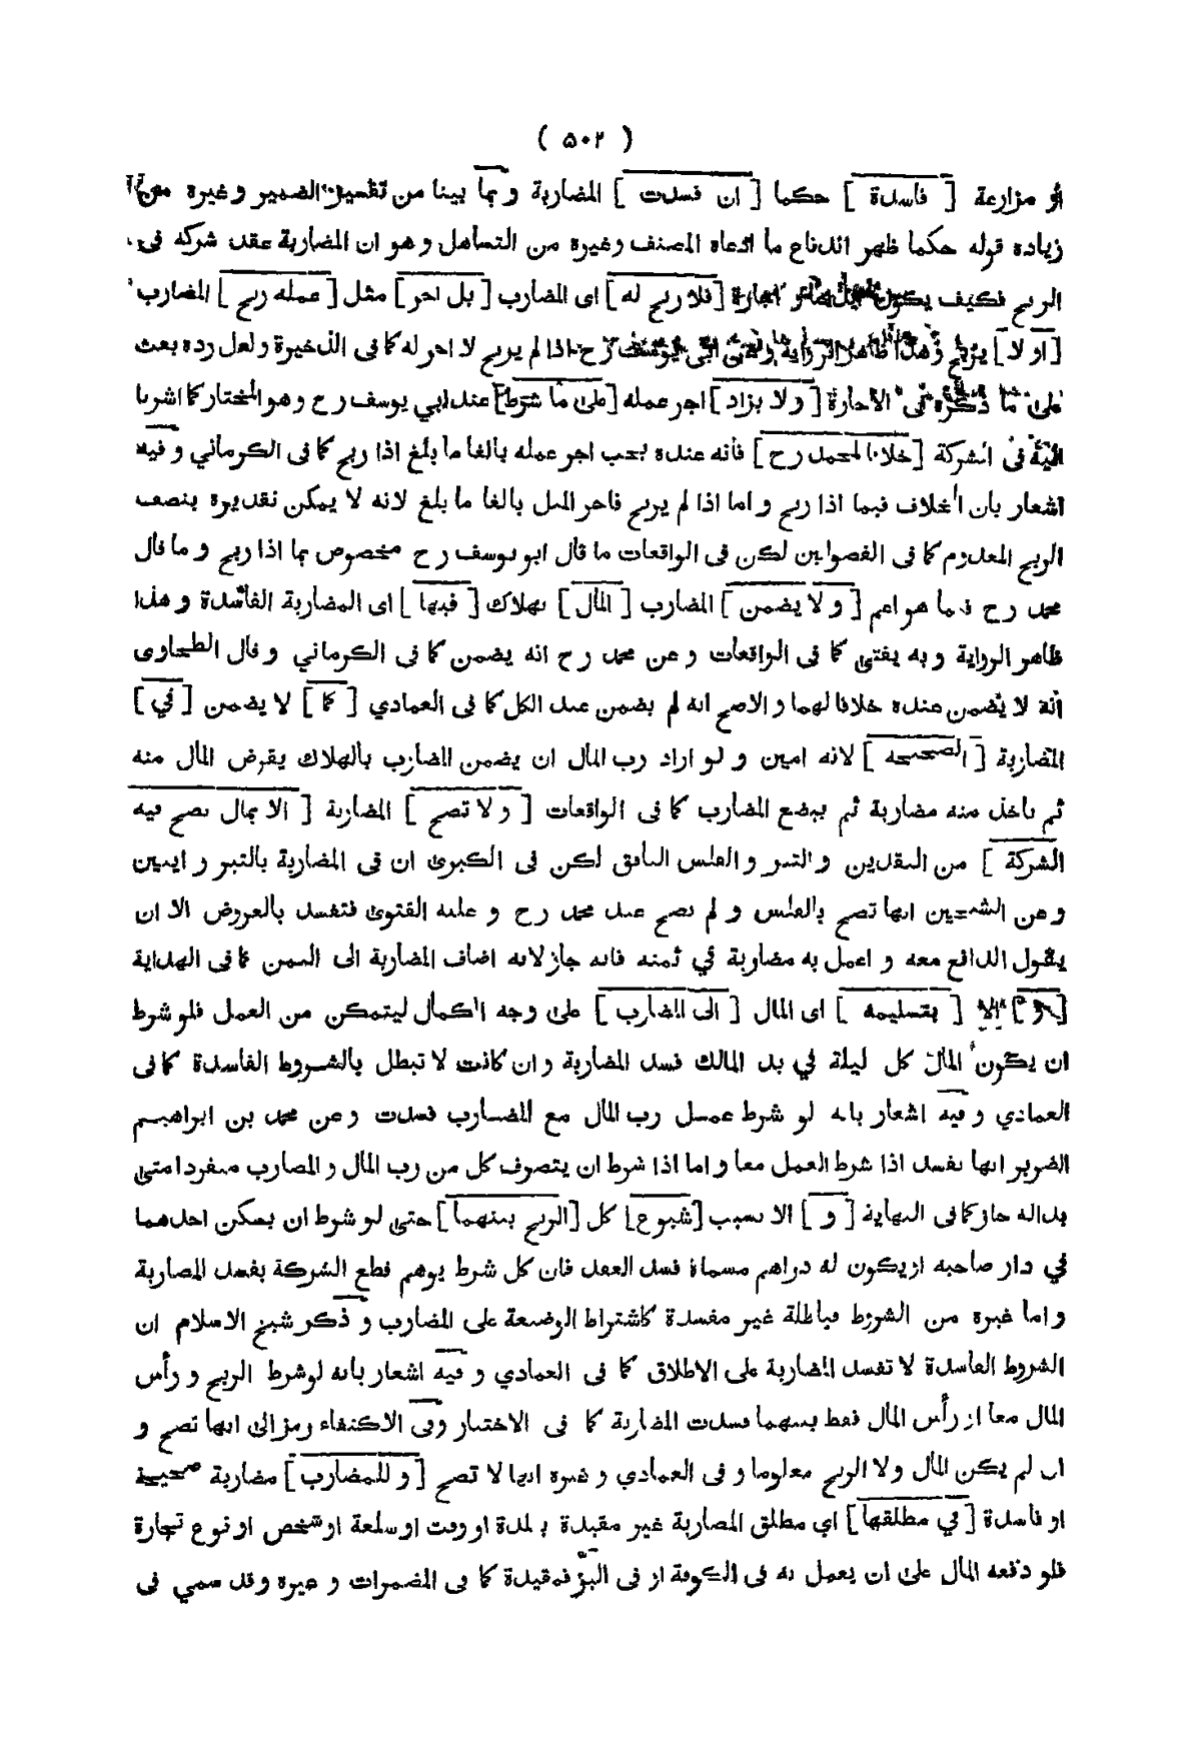 ( ۵۰۲ )
او مزارعة [ فاسدة ] حكما [ ان فسدت ] المضاربة و بما بينا من تفسير الضمير و غيره من
زياده قوله حكما ظهر اندفاع ما ادعاه المصنف وغيره من التساهل و هو ان المضاربة عقد شركه فى
الربح فكيف يكون اجارة [ فلا ربح له ] اى المضارب [ بل اجر ] مثل [ عمله ربح ] المضارب
[ او لا ] يربح وهذا ظاهر الرواية وعن ابى يوسف رح اذا لم يربح لا اجر له كما فى الذخيرة و لعل رده بعث
على ما ذكره فى الاجارة [ ولا يزاد ] اجر عمله [ على ما شرط ] عند ابي يوسف رح وهو المختار كما اشرنا
اليه فى الشركة [ خلافا لمحمد رح ] فانه عنده يجب اجر عمله بالغا ما بلغ اذا ربح كما فى الكرماني و فيه
اشعار بان الخلاف فيما اذا ربح و اما اذا لم يربح فاجر المثل بالغا ما بلغ لانه لا يمكن تقديره بنصف
الربح المعدوم كما فى الفصولين لكن فى الواقعات ما قال ابو يوسف رح مخصوص بما اذا ربح و ما قال
محمد رح فيما هو اعم [ و لا يضمن ] المضارب [ المال ] بهلاك [ فيها ] اى المضاربة الفاسدة و هذا
ظاهر الرواية و به يفتى كما فى الواقعات و عن محمد رح انه يضمن كما فى الكرماني و قال الطحاوى
انه لا يضمن عنده خلافا لهما و الاصح انه لم يضمن عند الكل كما فى العمادي [ كما ] لا يضمن [ في ]
المضاربة [ الصحيحه ] لانه امين و لو اراد رب المال ان يضمن المضارب بالهلاك يقرض المال منه
ثم ياخذ منه مضاربة ثم يبضع المضارب كما فى الواقعات [ و لا تصح ] المضاربة [ الا بمال تصح فيه
الشركة ] من النقدين و التبر و الفلس النافق لكن فى الكبرى ان فى المضاربة بالتبر روايتين
و عن الشيخين انها تصح بالفلس و لم تصح عند محمد رح و عليه الفتوى فتفسد بالعروض الا ان
يقول الدافع معه و اعمل به مضاربة في ثمنه فانه جاز لانه اضاف المضاربة الى الثمن كما فى الهداية
[ و ] الا [ بتسليمه ] اى المال [ الى المضارب ] على وجه الكمال ليتمكن من العمل فلو شرط
ان يكون المال كل ليلة في يد المالك فسد المضاربة و ان كانت لا تبطل بالشروط الفاسدة كما فى
العمادي و فيه اشعار بانه لو شرط عمل رب المال مع المضارب فسدت و عن محمد بن ابراهيم
الضرير انها تفسد اذا شرط العمل معا و اما اذا شرط ان يتصرف كل من رب المال و المضارب منفردا متى
بداله جاز كما فى النهاية [ و ] الا بسبب [ شيوع ] كل [ الربح بينهما ] حتى لو شرط ان يسكن احدهما
في دار صاحبه او يكون له دراهم مسماة فسد العقد فان كل شرط يوهم قطع الشركة يفسد المضاربة
و اما غيره من الشروط فباطلة غير مفسدة كاشتراط الوضيعة على المضارب و ذكر شيخ الاسلام ان
الشروط الفاسدة لا تفسد المضاربة على الاطلاق كما فى العمادي و فيه اشعار بانه لو شرط الربح و رأس
المال معا او رأس المال فقط بينهما فسدت المضاربة كما فى الاختيار وفى الاكتفاء رمز الى انها تصح و
ان لم يكن المال ولا الربح معلوما و فى العمادي و غيره انها لا تصح [ و للمضارب ] مضاربة صحيحة
او فاسدة [ في مطلقها ] اي مطلق المضاربة غير مقيدة ببلدة او وقت او سلعة او شخص او نوع تجارة
فلو دفعه المال على ان يعمل به فى الكوفة او فى البز فمقيدة كما فى المضمرات و غيره و قد سمي فى